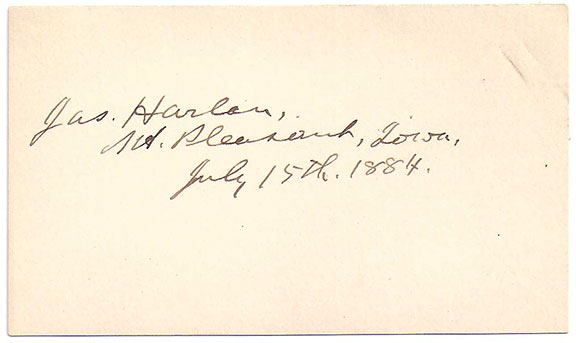 Jas. Harlan,
Mt. Pleasant, Iowa,
July 15th. 1884.